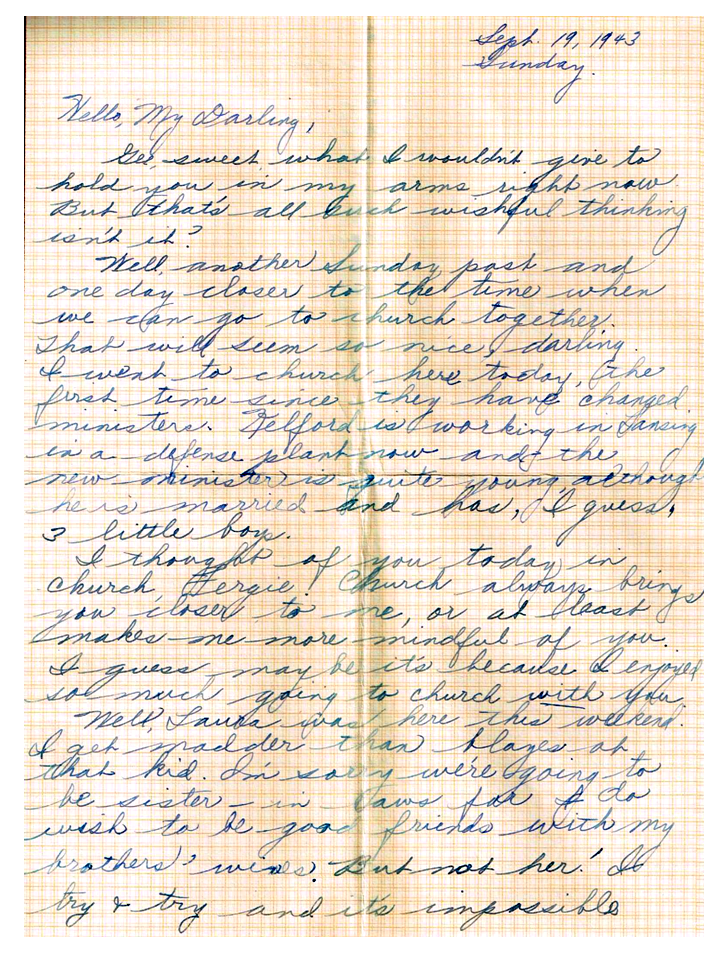 Sept. 19, 1943
Sunday.
Hello, My Darling,
Gee, sweet, what I wouldn't give to
hold you in my arms right now.
But that's all such wishful thinking
isn't it?
Well, another Sunday past and
one day closer to the time when
we can go to church together.
That will seem so nice, darling
I went to church here today, the
first time since they have changed
ministers. Telford is working in Lansing
in a defense plant now and the
new minister is quite young although
he is married and has, I guess,
3 little boys.
I thought of you today in
church, Fergie! Church always brings
you closer to me, or at least
makes me more mindful of you.
I guess may be it's because I enjoyed
so much going to church with you.
Well, Laura was here this weekend.
I get madder than blazes at
that kid. I'm sorry we're going to
be sister-in laws for I do
wish to be good friends with my
brothers' wives. But not her! I
try & try and it's impossible